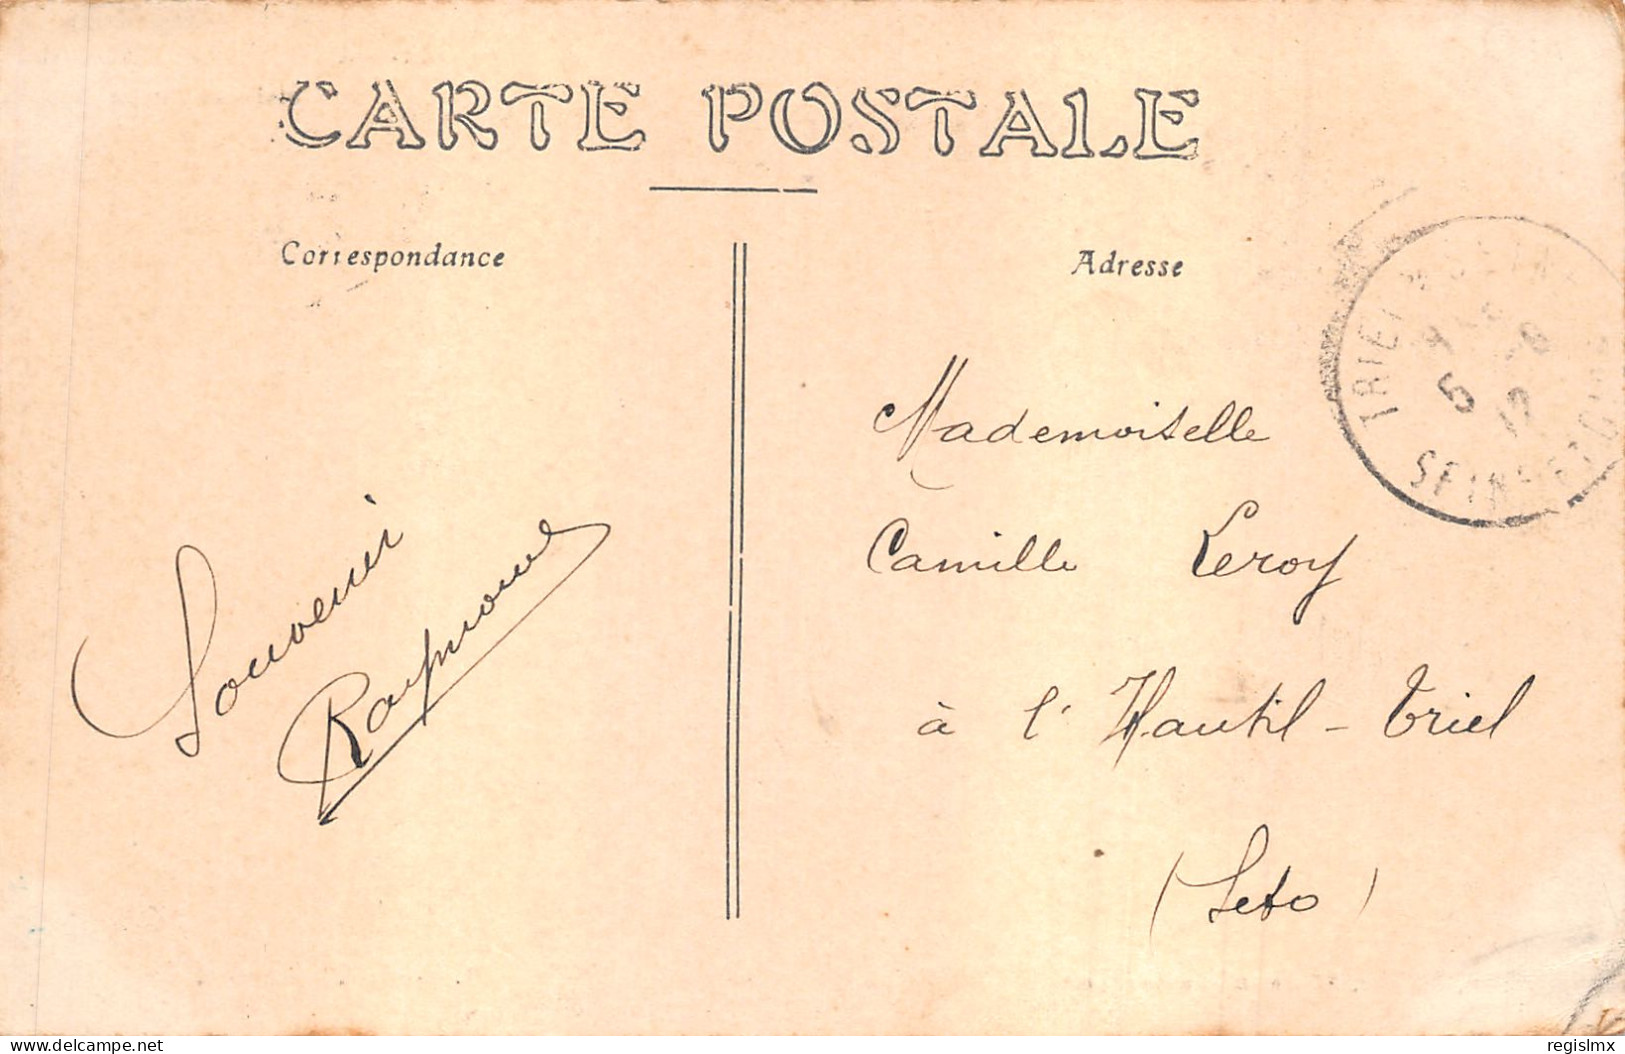 CARTE POSTALE
Correspondance
Adresse
Souvenir
Raymond
Mademoiselle
Camille Leroy
à l'Hautil - Triel
(Seto)
TRIEL
5
delcampe.net
regislmx